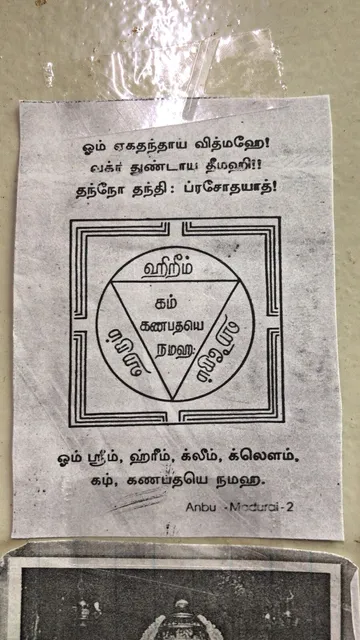 ஓம் ஏகதந்தாய வித்மஹே!
வக்ர துண்டாய தீமஹி!!
தந்நோ தந்தி: ப்ரசோதயாத்!
ஹிரீம்
கம்
கணபதயே
நமஹ:
ஓம் ஸ்ரீம், ஹ்ரீம், க்லீம், க்லௌம்,
கம், கணபதயே நமஹ.
Anbu - Madurai - 2